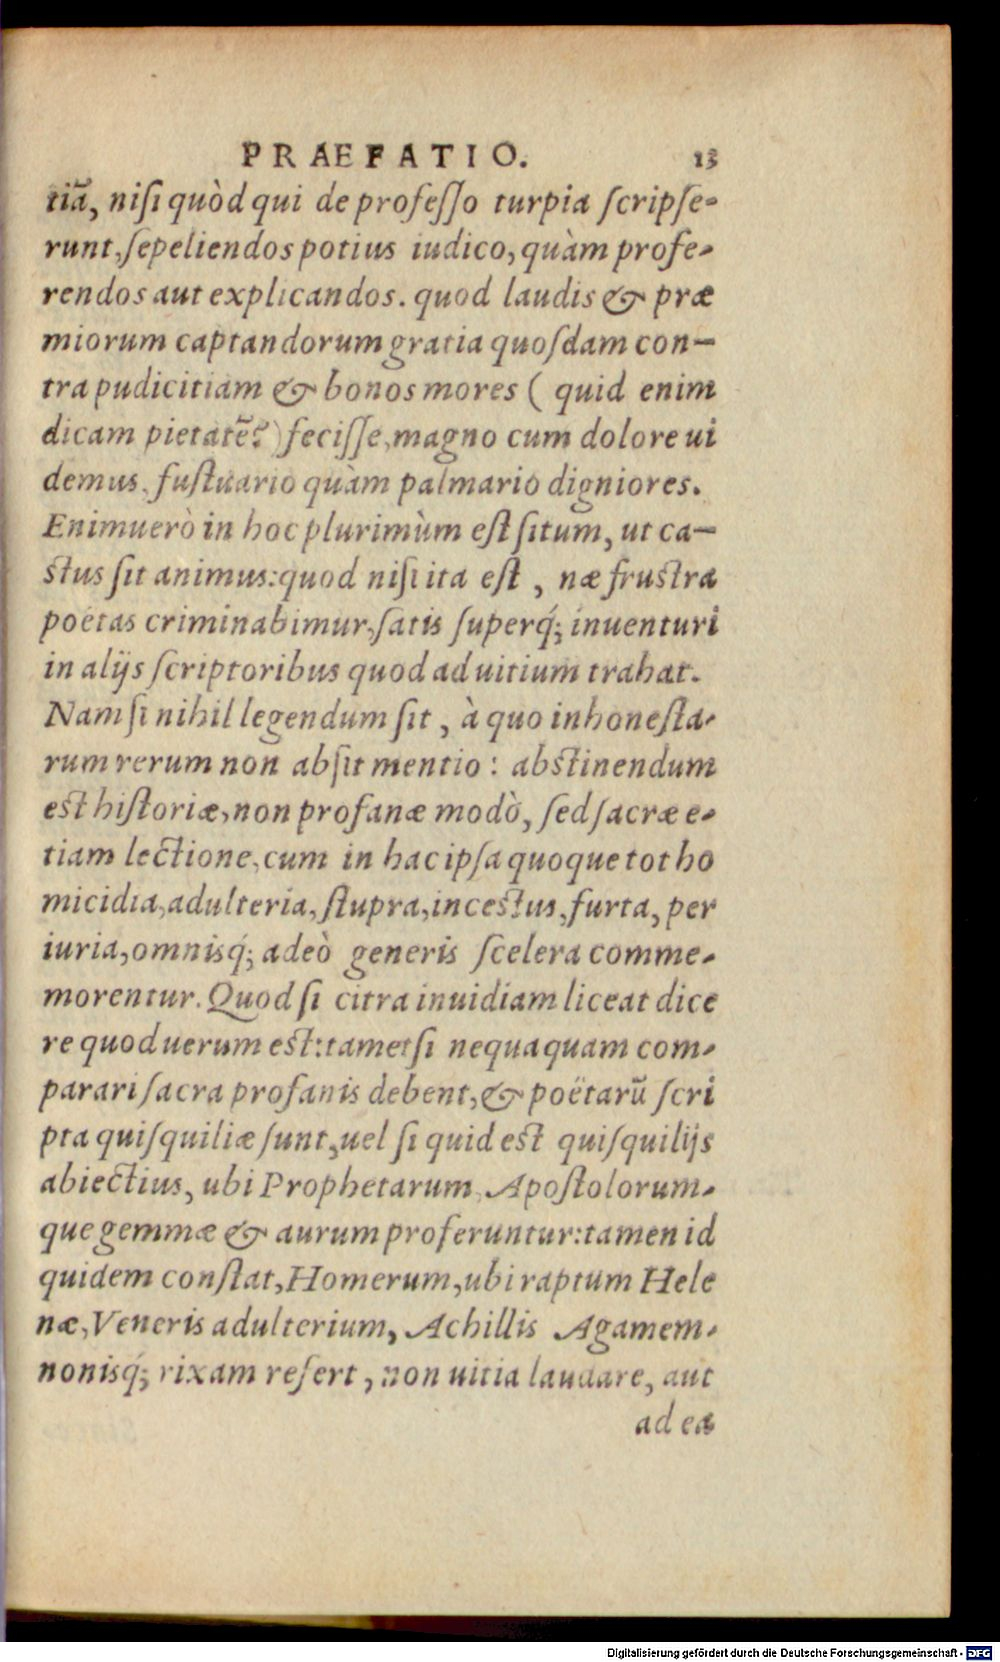 PRAEFATIO. 13
tiā, niſi quòd qui de profeſſo turpia ſcripſe-
runt, ſepeliendos potius iudico, quàm profe-
rendos aut explicandos. quod laudis & præ
miorum captandorum gratia quoſdam con-
tra pudicitiam & bonos mores ( quid enim
dicam pietatē? ) feciſſe, magno cum dolore ui
demus, fuſtuario quàm palmario digniores.
Enimuerò in hoc plurimùm eſt ſitum, ut ca-
ſtus ſit animus: quod niſi ita eſt, næ fruſtra
poëtas criminabimur, ſatis ſuperq́; inuenturi
in alijs ſcriptoribus quod ad uitium trahat.
Nam ſi nihil legendum ſit, à quo inhoneſta-
rum rerum non abſit mentio: abſtinendum
eſt hiſtoriæ, non profanæ modò, ſed ſacræ e-
tiam lectione, cum in hac ipſa quoque tot ho
micidia, adulteria, ſtupra, inceſtus, furta, per
iuria, omnisq́; adeò generis ſcelera comme-
morentur. Quod ſi citra inuidiam liceat dice
re quod uerum eſt: tametſi nequaquam com-
parari ſacra profanis debent, & poëtarū ſcri
pta quiſquiliæ ſunt, uel ſi quid eſt quiſquilijs
abiectius, ubi Prophetarum, Apoſtolorum-
que gemmæ & aurum proferuntur: tamen id
quidem conſtat, Homerum, ubi raptum Hele
næ, Veneris adulterium, Achillis Agamem-
nonisq́; rixam refert, non uitia laudare, aut
ad ea
Digitalisierung gefördert durch die Deutsche Forschungsgemeinschaft - DFG